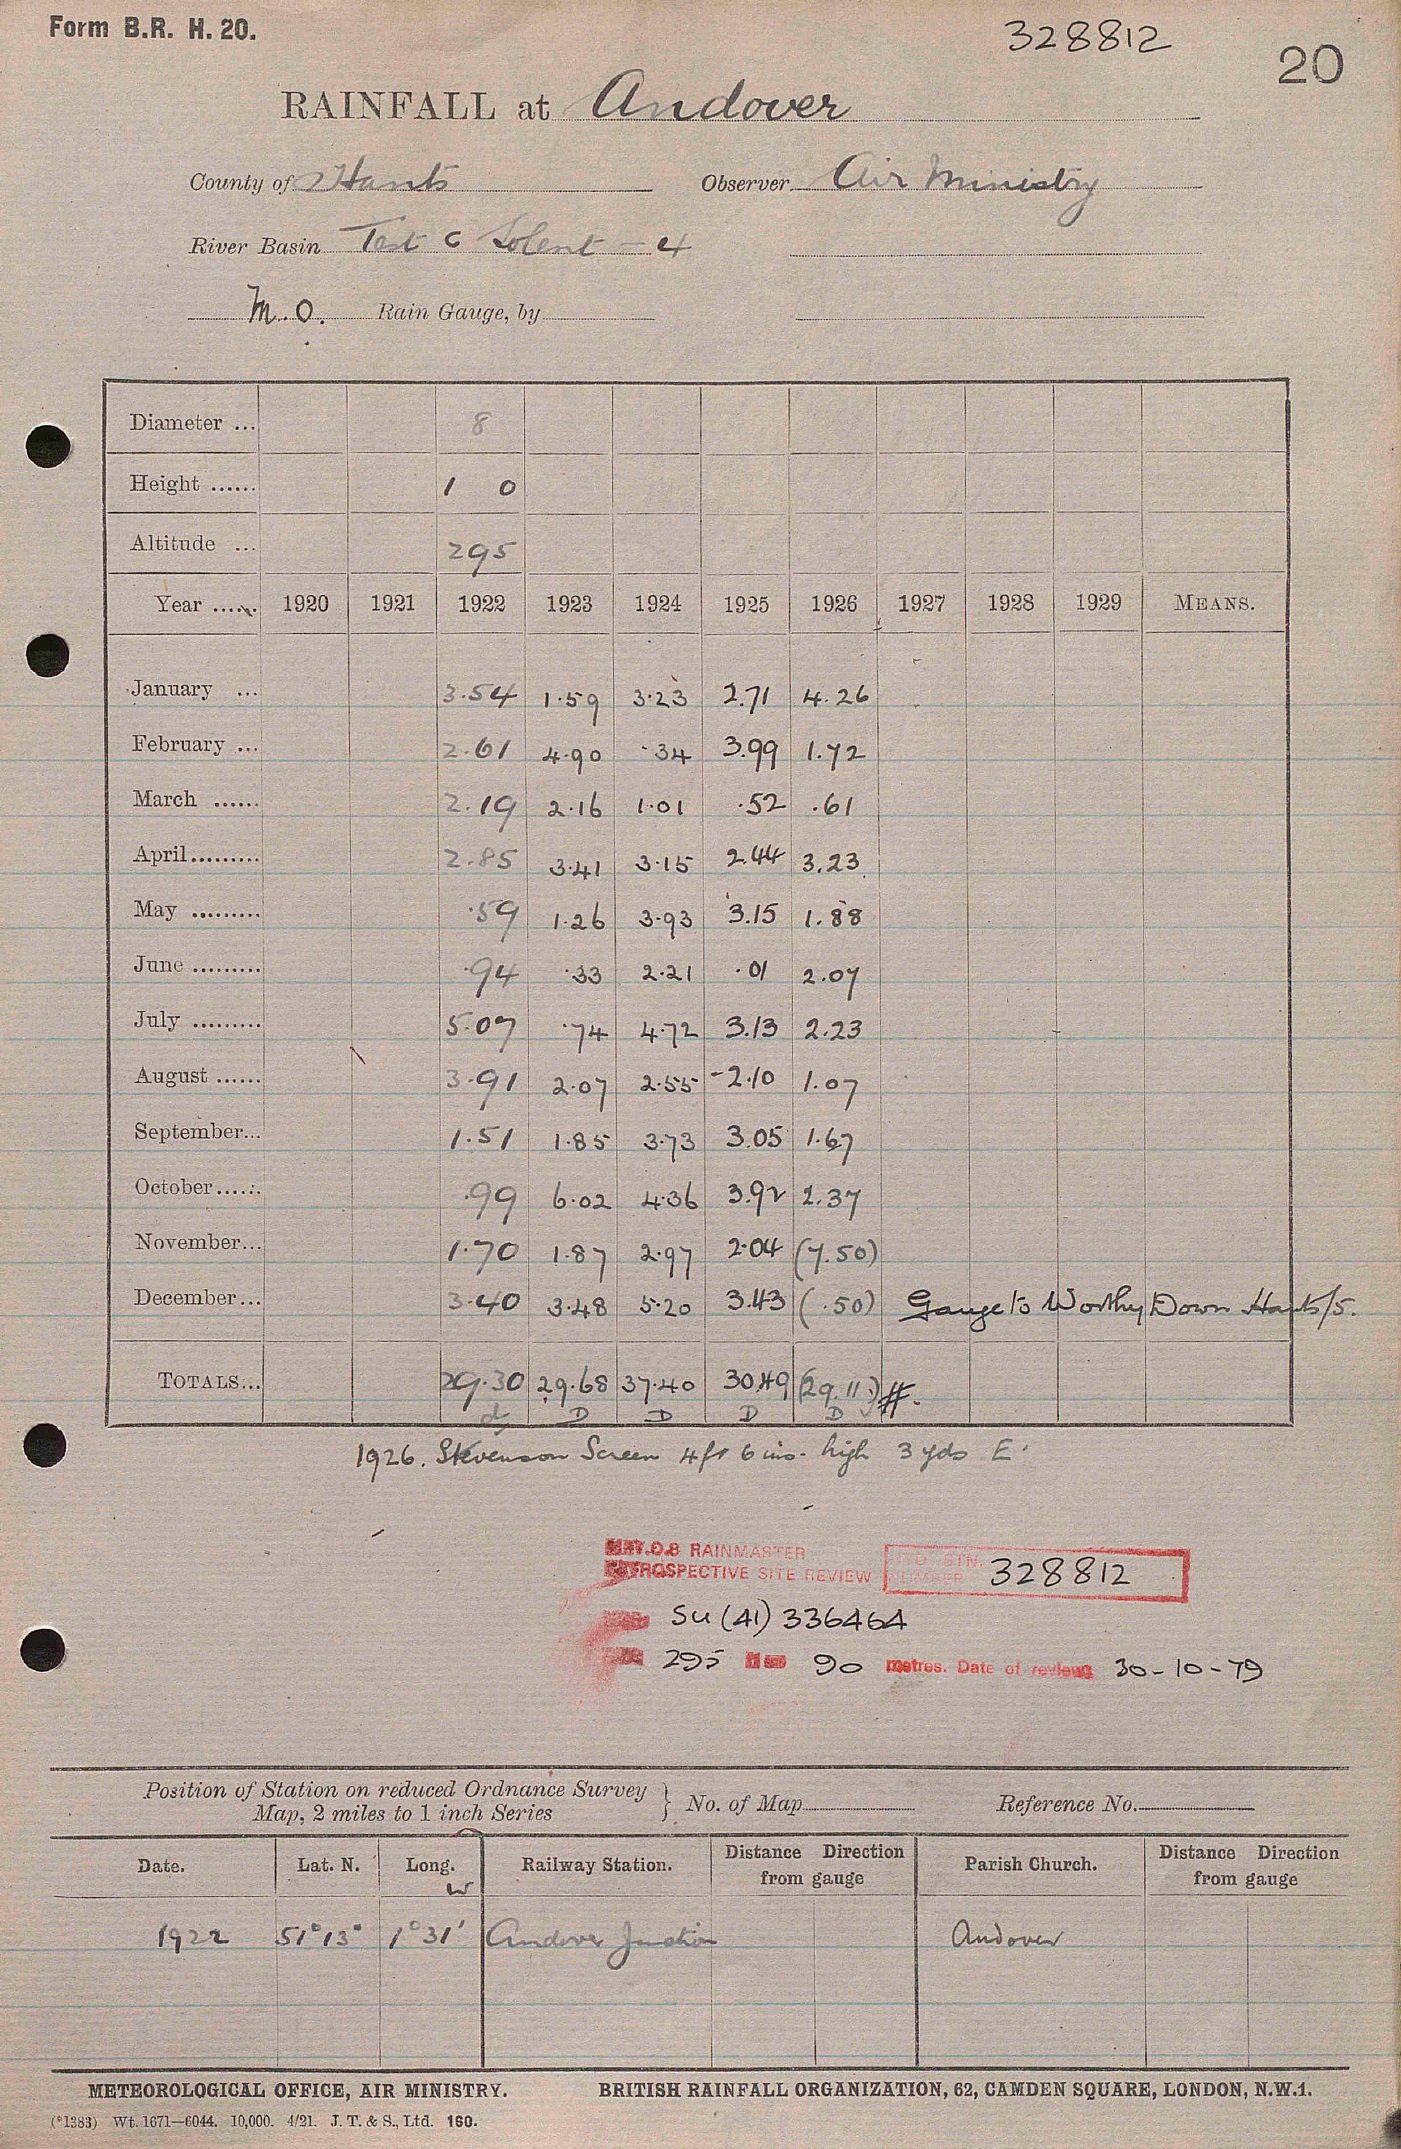 Form B.R. H. 20.
328812
20
RAINFALL at Andover
County of Hants Observer Air Ministry
River Basin Test C Solent - 4
M.O. Rain Gauge, by
Diameter ... 8
Height ...... 1 0
Altitude ... 295
Year ...... 1920 1921 1922 1923 1924 1925 1926 1927 1928 1929 MEANS.
January ... 3.54 1.59 3.23 2.71 4.26
February ... 2.61 4.90 .34 3.99 1.72
March ...... 2.19 2.16 1.01 .52 .61
April......... 2.85 3.41 3.15 2.44 3.23
May ......... .59 1.26 3.93 3.15 1.88
June ......... .94 .33 2.21 .01 2.07
July ......... 5.07 .74 4.72 3.13 2.23
August ...... 3.91 2.07 2.55 2.10 1.07
September... 1.51 1.85 3.73 3.05 1.67
October...... .99 6.02 4.36 3.92 2.37
November... 1.70 1.87 2.97 2.04 (7.50)
December... 3.40 3.48 5.20 3.43 (.50) Gauge to Worthy Down Hants/5.
TOTALS... 29.30 29.68 37.40 30.49 (29.11) #.
d D D D D
1926. Stevenson Screen 4 ft 6 ins. high 3 yds E.
MET.O.8 RAINMASTER
RETROSPECTIVE SITE REVIEW
STN. NUMBER 328812
SU (41) 336464
295 90 metres. Date of review 30-10-79
Position of Station on reduced Ordnance Survey
Map, 2 miles to 1 inch Series } No. of Map Reference No.
Date. Lat. N. Long. W Railway Station. Distance Direction from gauge Parish Church. Distance Direction from gauge
1922 51° 13' 1° 31' Andover Junction Andover
METEOROLOGICAL OFFICE, AIR MINISTRY. BRITISH RAINFALL ORGANIZATION, 62, CAMDEN SQUARE, LONDON, N.W.1.
(*1383) Wt. 1671—6044. 10,000. 4/21. J. T. & S., Ltd. 160.